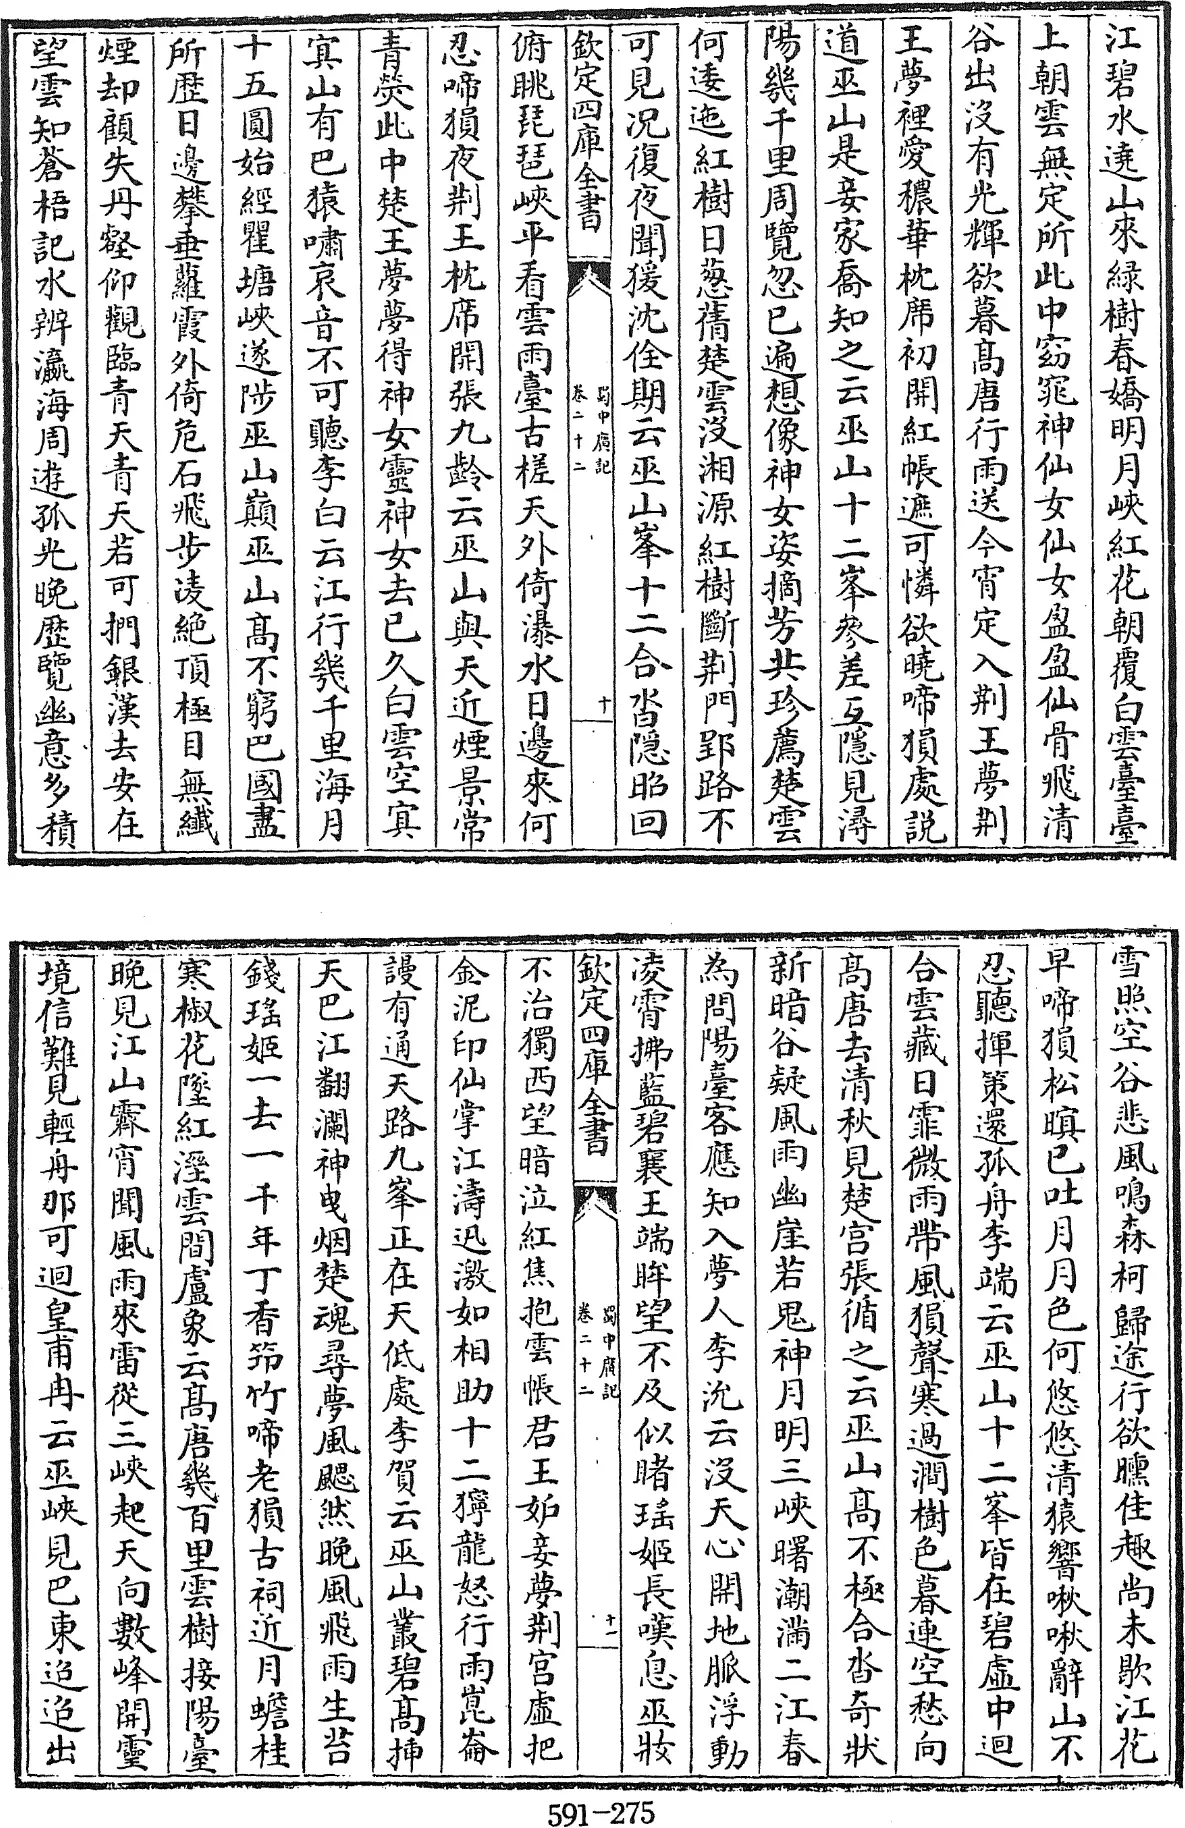 江碧水遶山來綠樹春嬌明月峽紅花朝覆白雲臺臺
上朝雲無定所此中窈窕神仙女仙女盈盈仙骨飛清
谷出沒有光輝欲暮髙唐行雨送今宵定入荆王夢荆
王夢裡愛穠華枕席初開紅帳遮可憐欲曉啼猿處說
道巫山是妾家喬知之云巫山十二峯參差互隱見潯
陽幾千里周覽忽已遍想像神女姿摘芳共珍薦楚雲
何逶迤紅樹日葱蒨楚雲沒湘源紅樹斷荆門郢路不
可見况復夜聞猨沈佺期云巫山峯十二合沓隱昭回
欽定四庫全書
蜀中廣記
卷二十二
十
俯眺琵琶峽平看雲雨臺古槎天外倚瀑水日邊來何
忍啼猿夜荆王枕席開張九齡云巫山與天近煙景常
青熒此中楚王夢夢得神女靈神女去已久白雲空冥
冥山有巴猿嘯哀音不可聽李白云江行幾千里海月
十五圓始經瞿塘峽遂陟巫山巔巫山髙不窮巴國盡
所歷日邊攀垂蘿霞外倚危石飛步凌絶頂極目無纖
煙却顧失丹壑仰觀臨青天青天若可捫銀漢去安在
望雲知蒼梧記水辨瀛海周遊孤光晚歷覽幽意多積
雪照空谷悲風鳴森柯歸途行欲曛佳趣尚未歇江花
早啼猿松暝已吐月月色何悠悠清猿響啾啾辭山不
忍聽揮策還孤舟李端云巫山十二峯皆在碧虛中迴
合雲藏日霏微雨帶風猿聲寒過澗樹色暮連空愁向
髙唐去清秋見楚宫張循之云巫山髙不極合沓奇狀
新暗谷疑風雨幽崖若鬼神月明三峽曙潮滿二江春
為問陽臺客應知入夢人李沇云沒天心開地脈浮動
凌霄拂藍碧襄王端眸望不及似睹瑶姬長嘆息巫妝
欽定四庫全書
蜀中廣記
卷二十二
十一
不治獨西望暗泣紅焦抱雲帳君王妬妾夢荆宫虛把
金泥印仙掌江濤迅激如相助十二獰龍怒行雨崑崙
謾有通天路九峯正在天低處李賀云巫山叢碧髙挿
天巴江翻瀾神曳烟楚魂尋夢風颸然晚風飛雨生苔
錢瑶姬一去一千年丁香筇竹啼老猿古祠近月蟾桂
寒椒花墜紅溼雲間盧象云髙唐幾百里雲樹接陽臺
晚見江山霽宵聞風雨來雷從三峽起天向數峰開靈
境信難見輕舟那可迴皇甫冉云巫峽見巴東迢迢出
591-275